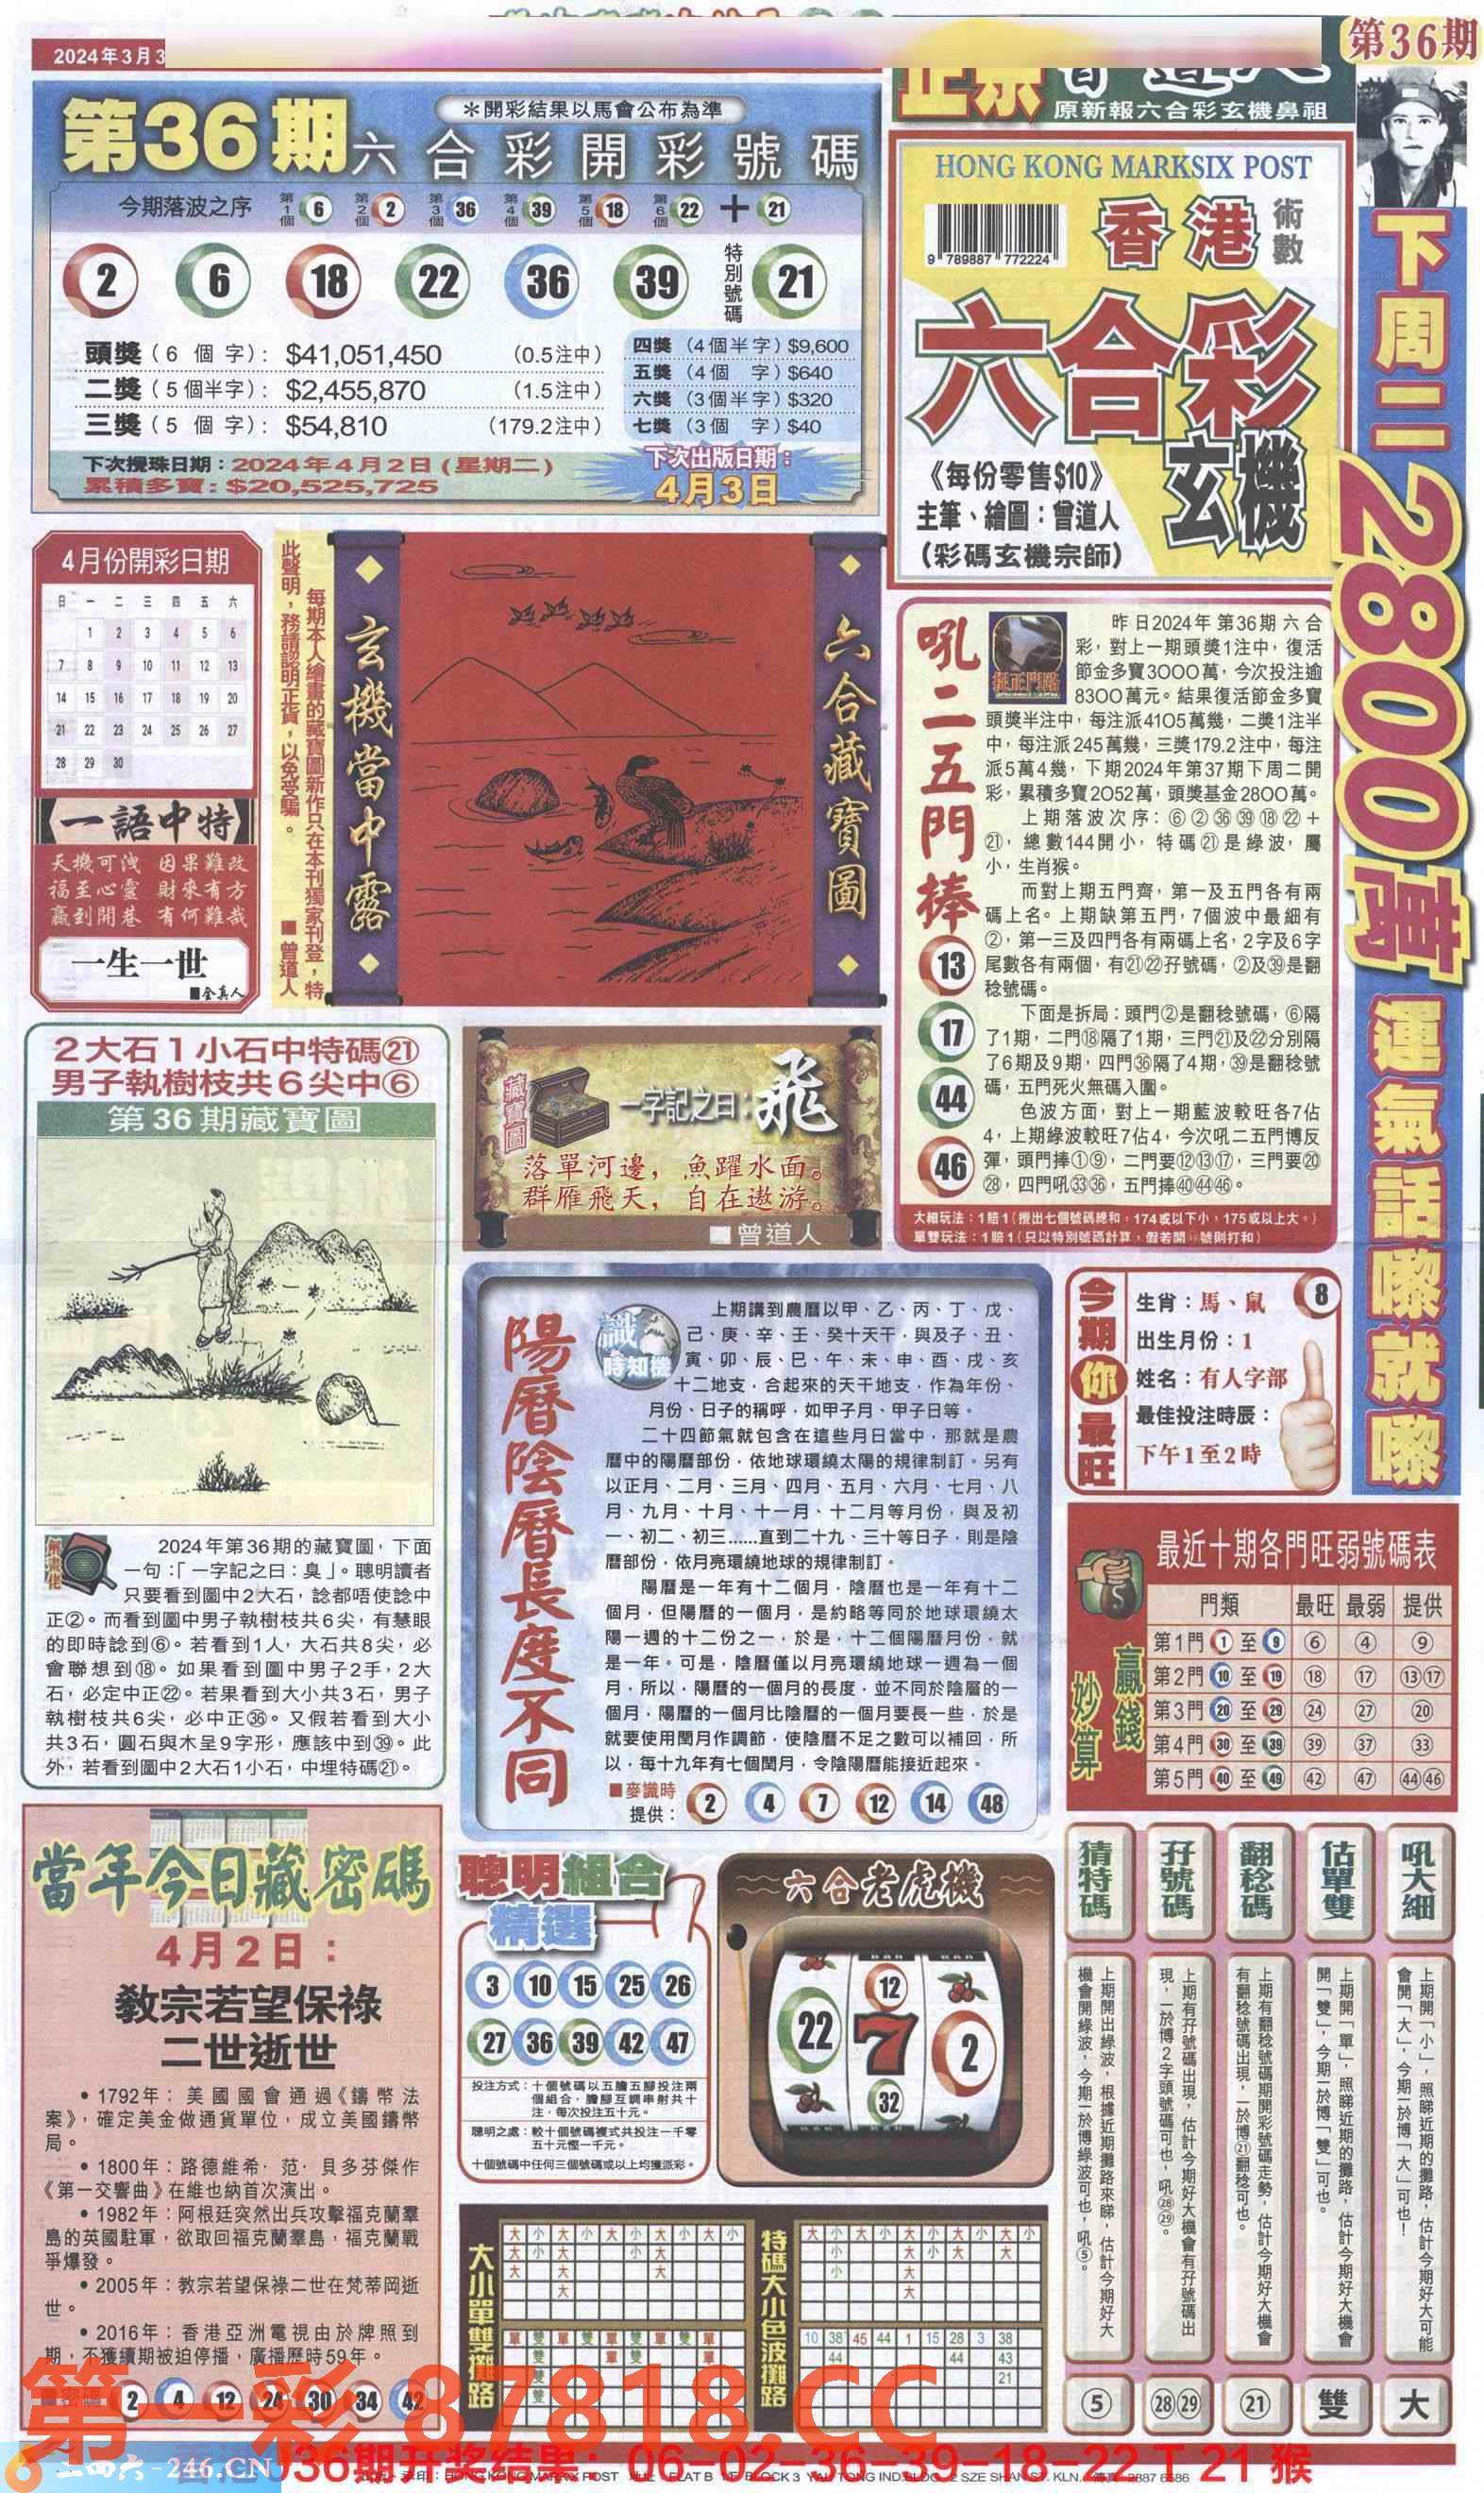 第36期
2024年3月3
原新報六合彩玄機鼻祖
第36期六合彩開彩號碼
＊開彩結果以馬會公布為準
今期落波之序 第1個 6 第2個 2 第3個 36 第4個 39 第5個 18 第6個 22 ＋ 21
2 6 18 22 36 39 特別號碼 21
頭獎（6 個 字）： $41,051,450 （0.5注中）
二獎（5個半字）： $2,455,870 （1.5注中）
三獎（5 個 字）： $54,810 （179.2注中）
四獎（4個半字）$9,600
五獎（4個 字）$640
六獎（3個半字）$320
七獎（3個 字）$40
下次攪珠日期：2024年4月2日（星期二）
累積多寶：$20,525,725
下次出版日期：
4月3日
HONG KONG MARKSIX POST
9 789887 772224
香港
術數
六合彩
玄機
《每份零售$10》
主筆、繪圖：曾道人
（彩碼玄機宗師）
下周二2800萬運氣話嚟就嚟
4月份開彩日期
日 一 二 三 四 五 六
1 2 3 4 5 6
7 8 9 10 11 12 13
14 15 16 17 18 19 20
21 22 23 24 25 26 27
28 29 30
一語中特
天機可洩 因果難改
福至心靈 財來有方
贏到開巷 有何難哉
一生一世
■全真人
每期本人繪畫的藏寶圖新作只在本刊獨家刊登，特
此聲明，務請認明正貨，以免受騙。 ■曾道人
玄機當中露
六合藏寶圖
吼二五門捧
13
17
44
46
捉正門路
昨日2024年第36期六合
彩，對上一期頭獎1注中，復活
節金多寶3000萬，今次投注逾
8300萬元。結果復活節金多寶
頭獎半注中，每注派4105萬幾，二獎1注半
中，每注派245萬幾，三獎179.2注中，每注
派5萬4幾，下期2024年第37期下周二開
彩，累積多寶2052萬，頭獎基金2800萬。
上期落波次序：⑥②㊱㊴⑱㉒＋
㉑，總數144開小，特碼㉑是綠波，屬
小，生肖猴。
而對上期五門齊，第一及五門各有兩
碼上名。上期缺第五門，7個波中最細有
②，第一三及四門各有兩碼上名，2字及6字
尾數各有兩個，有㉑㉒孖號碼，②及㊴是翻
稔號碼。
下面是拆局：頭門②是翻稔號碼，⑥隔
了1期，二門⑱隔了1期，三門㉑及㉒分別隔
了6期及9期，四門㊱隔了4期，㊴是翻稔號
碼，五門死火無碼入圍。
色波方面，對上一期藍波較旺各7佔
4，上期綠波較旺7佔4，今次吼二五門博反
彈，頭門捧①⑨，二門要⑫⑬⑰，三門要⑳
㉘，四門吼㉝㊱，五門捧㊵㊹㊻。
大細玩法：1賠1（攪出七個號碼總和，174或以下小，175或以上大。）
單雙玩法：1賠1（只以特別號碼計算，假若開㊾號則打和）
2大石1小石中特碼㉑
男子執樹枝共6尖中⑥
第36期藏寶圖
2024年第36期的藏寶圖，下面
一句：「一字記之曰：臭」。聰明讀者
只要看到圖中2大石，諗都唔使諗中
正②。而看到圖中男子執樹枝共6尖，有慧眼
的即時諗到⑥。若看到1人，大石共8尖，必
會聯想到⑱。如果看到圖中男子2手，2大
石，必定中正㉒。若果看到大小共3石，男子
執樹枝共6尖，必中正㊱。又假若看到大小
共3石，圓石與木呈9字形，應該中到㊴。此
外，若看到圖中2大石1小石，中埋特碼㉑。
藏寶圖
一字記之曰：飛
落單河邊，魚躍水面。
群雁飛天，自在遨游。
■曾道人
陽曆陰曆長度不同
識時知機
上期講到農曆以甲、乙、丙、丁、戊、
己、庚、辛、壬、癸十天干，與及子、丑、
寅、卯、辰、巳、午、未、申、酉、戌、亥
十二地支，合起來的天干地支，作為年份、
月份、日子的稱呼，如甲子月、甲子日等。
二十四節氣就包含在這些月日當中，那就是農
曆中的陽曆部份，依地球環繞太陽的規律制訂。另有
以正月、二月、三月、四月、五月、六月、七月、八
月、九月、十月、十一月、十二月等月份，與及初
一、初二、初三……直到二十九、三十等日子，則是陰
曆部份，依月亮環繞地球的規律制訂。
陽曆是一年有十二個月，陰曆也是一年有十二
個月，但陽曆的一個月，是約略等同於地球環繞太
陽一週的十二份之一，於是，十二個陽曆月份，就
是一年。可是，陰曆僅以月亮環繞地球一週為一個
月，所以，陽曆的一個月的長度，並不同於陰層的一
個月，陽曆的一個月比陰曆的一個月要長一些，於是
就要使用閏月作調節，使陰曆不足之數可以補回，所
以，每十九年有七個閏月，令陰陽曆能接近起來。
■麥識時
提供：
2 4 7 12 14 48
今期你最旺
生肖：馬、鼠
8
出生月份：1
姓名：有人字部
最佳投注時辰：
下午1至2時
最近十期各門旺弱號碼表
贏錢妙算
門類 最旺 最弱 提供
第1門 1 至 9 ⑥ ④ ⑨
第2門 10 至 19 ⑱ ⑰ ⑬⑰
第3門 20 至 29 ㉔ ㉗ ⑳
第4門 30 至 39 ㊴ ㊲ ㉝
第5門 40 至 49 ㊷ ㊼ ㊹㊻
當年今日藏密碼
4月2日：
教宗若望保祿
二世逝世
• 1792年：美國國會通過《鑄幣法
案》，確定美金做通貨單位，成立美國鑄幣
局。
• 1800年：路德維希·范·貝多芬傑作
《第一交響曲》在維也納首次演出。
• 1982年：阿根廷突然出兵攻擊福克蘭羣
島的英國駐軍，欲取回福克蘭羣島，福克蘭戰
爭爆發。
• 2005年：教宗若望保祿二世在梵蒂岡逝
世。
• 2016年：香港亞洲電視由於牌照到
期，不獲續期被迫停播，廣播歷時59年。
2 4 12 24 30 34 42
聰明組合
精選
3 10 15 25 26
27 36 39 42 47
投注方式：十個號碼以五膽五腳投注兩
個組合，膽腳互調串射共十
注，每次投注五十元。
聰明之處：較十個號碼複式共投注一千零
五十元慳一千元。
十個號碼中任何三個號碼或以上均獲派彩。
六合老虎機
22 12 7 32 2
大小單雙攤路
大 小 大 小 大 小 大 小 大 小
大 小 大 小 大
大 大 大
大
單 雙 單 雙 單 雙 單 雙 單
雙 單 雙 單
雙
雙
特碼大小色波攤路
大 小 大 小 大 小 大 小 大 小
小 大 小 大 大
小 大
大
10 38 45 44 1 15 28 3 38
44 44 43
21
猜特碼
上期開出綠波，根據近期攤路來睇，估計今期好大
機會開綠波，今期一於博綠波可也，吼⑤。
⑤
孖號碼
上期有孖號碼出現，估計今期好大機會有孖號碼出
現，一於博2字頭號碼可也，吼㉘㉙。
㉘㉙
翻稔碼
上期有翻稔號碼期開彩號碼走勢，估計今期好大機會
有翻稔號碼出現，一於博㉑翻稔可也。
㉑
估單雙
上期開「單」，照睇近期的攤路，估計今期好大機會
開「雙」，今期一於博「雙」可也。
雙
吼大細
上期開「小」，照睇近期的攤路，估計今期好大可能
會開「大」，今期一於博「大」可也！
大
第一彩 87818.CC
二四六-246.CN
036期开奖结果：06-02-36-39-18-22 T 21 猴